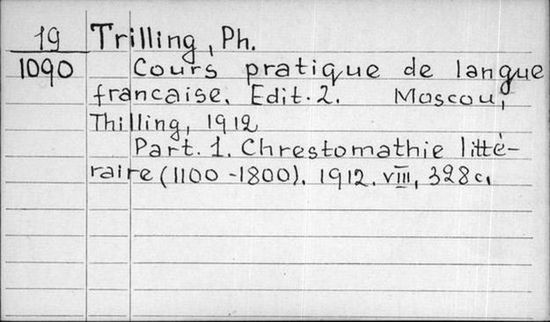 19 Trilling, Ph.
1090 Cours pratique de langue
francaise. Edit. 2. Moscou,
Thilling, 1912
Part. 1. Chrestomathie litté-
raire (1100-1800). 1912. VIII, 328 c.